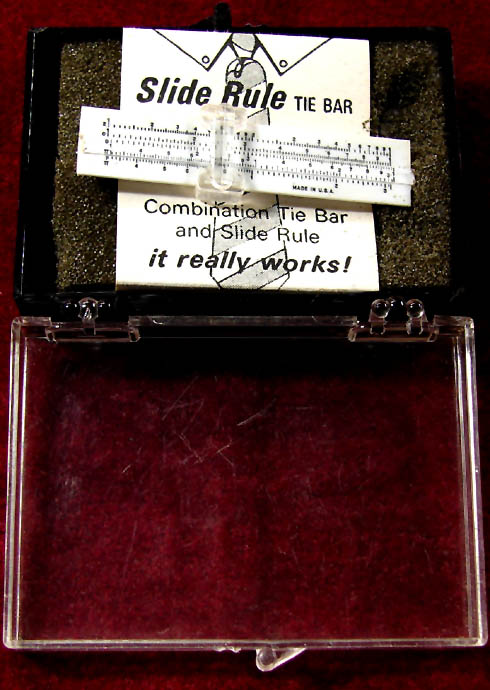 Slide Rule TIE BAR
MADE IN U.S.A.
Combination Tie Bar
and Slide Rule
it really works!